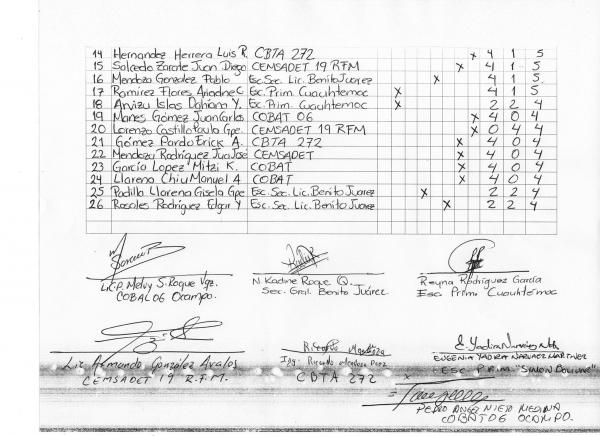 14 Hernandez Herrera Luis R. CBTA 272 x 4 1 5
15 Salcedo Zarate Juan Diego CEMSADET 19 RFM x 4 1 5
16 Mendoza Gonzalez Pablo Esc. Sec. Lic. Benito Juarez x 4 1 5
17 Ramirez Flores Ariadne C Esc. Prim. Cuauhtemoc x 4 1 5
18 Arvizu Islas Dahiana Y. Esc. Prim. Cuauhtemoc x 2 2 4
19 Mares Gómez Juan Carlos COBAT 06 x 4 0 4
20 Lorenzo Castillo Paulo Gpe. CEMSADET 19 RFM x 0 4 4
21 Gómez Pardo Erick A. CBTA 272 x 4 0 4
22 Mendoza Rodríguez Jua José CEMSADET x 4 0 4
23 García Lopez Mitzi K. COBAT x 4 0 4
24 Llarena Chiu Manuel A COBAT x 4 0 4
25 Padilla Llarena Gisela Gpe Esc. Sec. Lic. Benito Juarez x 2 2 4
26 Rosales Rodríguez Edgar Y Esc. Sec. Lic. Benito Juarez x 2 2 4
Lic. P. Melvy S. Roque Vgz.
COBAL 06 Ocampo.
N. Kadine Roque Q.
Sec. Gral. Benito Juárez.
Reyna Rodríguez García
Esc Prim. Cuauhtemoc
Lic. Armando González Avalos
CEMSADET 19 R.F.M.
Ing. Ricardo Mendoza
CBTA 272
EUGENIA YADIRA NARVAEZ MARTINEZ
ESC PRIM. "SIMON BOLIVAR"
PEDRO ANGEL NIETO MEDINA
COBAT 06 OCAMPO.